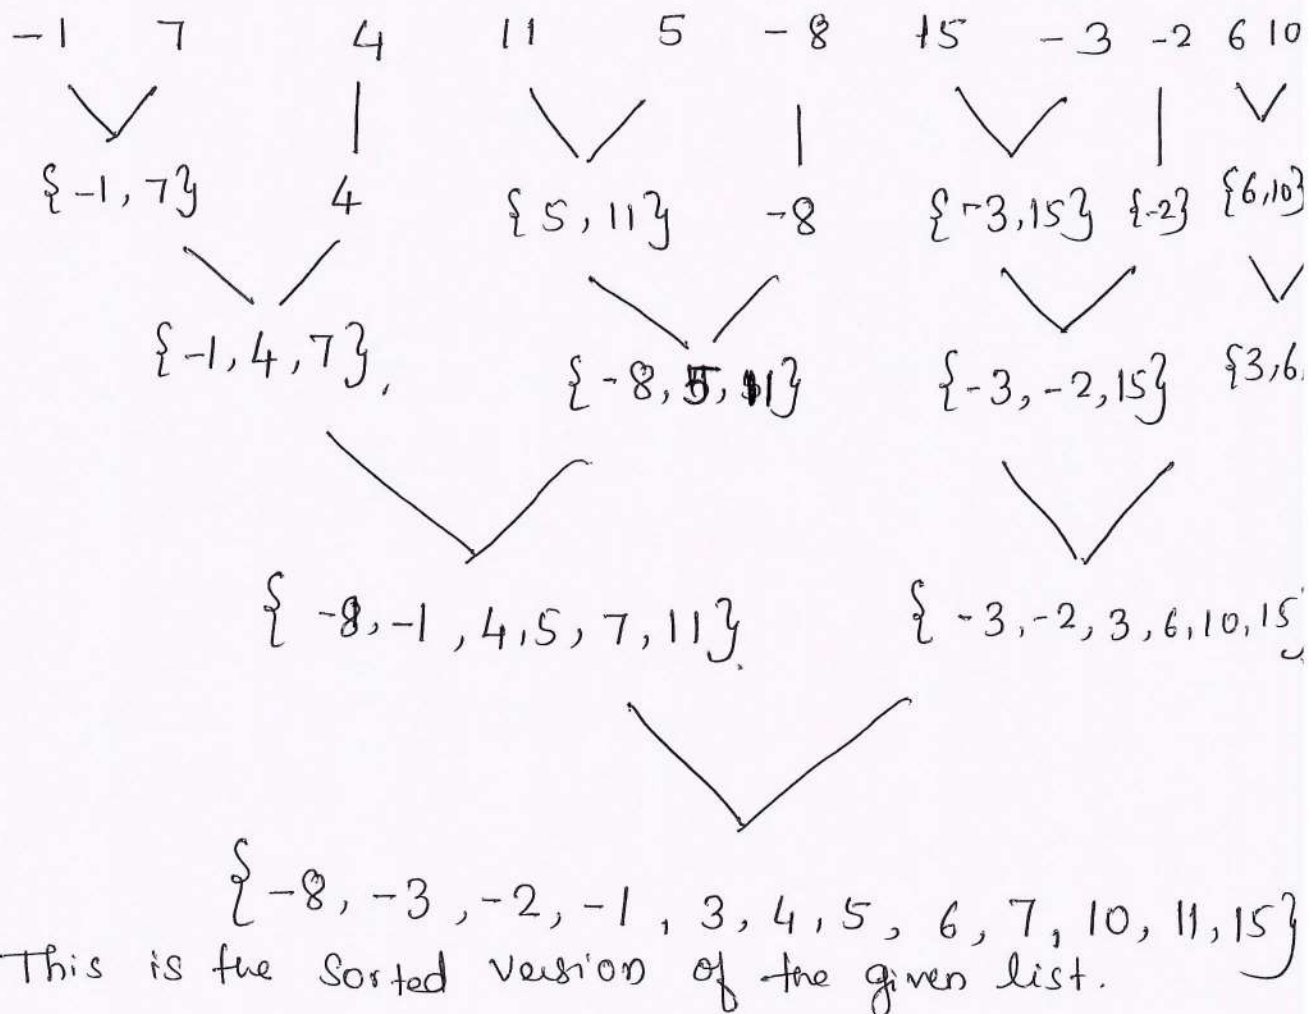 -1 7 4 11 5 -8 15 -3 -2 6 10
{-1, 7} 4 {5, 11} -8 {-3, 15} {-2} {6, 10}
{-1, 4, 7}, {-8, 5, 11} {-3, -2, 15} {3, 6,
{-8, -1, 4, 5, 7, 11}. {-3, -2, 3, 6, 10, 15}
{-8, -3, -2, -1, 3, 4, 5, 6, 7, 10, 11, 15}
This is the Sorted version of the given list.